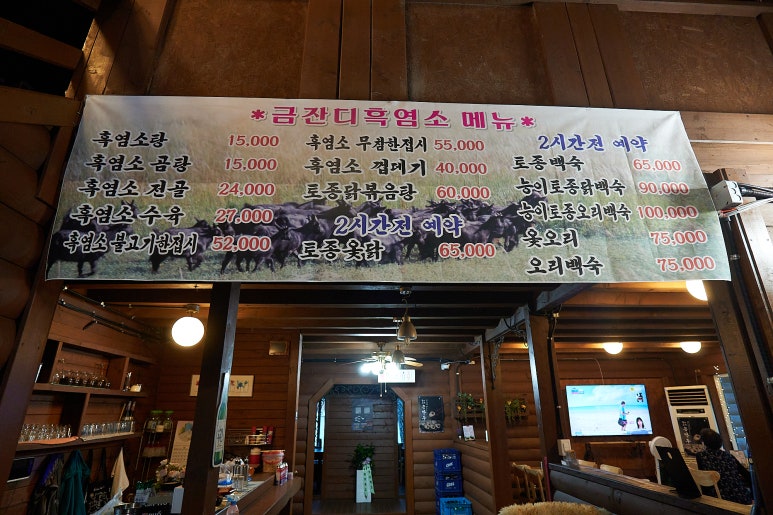 *금잔디흑염소 메뉴*
흑염소탕 15,000
흑염소 곰탕 15,000
흑염소 전골 24,000
흑염소 수육 27,000
흑염소 불고기한접시 52,000
흑염소 무침한접시 55,000
흑염소 껍데기 40,000
토종닭볶음탕 60,000
2시간전 예약
토종옻닭 65,000
2시간전 예약
토종백숙 65,000
능이토종닭백숙 90,000
능이토종오리백숙 100,000
옻오리 75,000
오리백숙 75,000